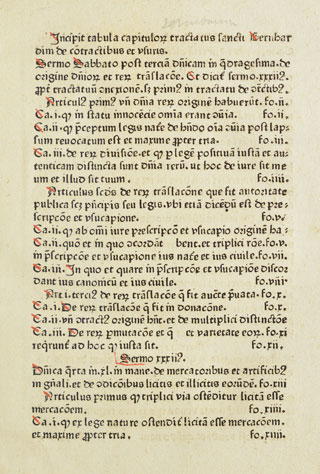 Incipit tabula capituloꝝ tractatus sancti Bernhar
dini de cōtractibus et vsuris.
Sermo Sabbato post terciā dn̄icam in q̄dragesima. de
origine dn̄ioꝝ et reꝝ trāslacōe. Et dicit̉ sermo. xxxii⁹.
ꝓpt̉ tractatuū cnexionē. s; prim⁹ in tractatu de ctctib⁹.
Articul⁹ prim⁹ vn̄ dn̄ia reꝝ originē habuerūt. fo. ii.
Ca. i. ꝙ in statu innocēcie omīa erant cōīa.
Ca. ii. ꝙ p̄ceptum legis nat̉e de hn̄do oīa cōia post lap-
sum reuocatum est et maxime ꝓpter tria. fo. iii.
Ca. iii. de reꝝ diuisiōe. et ꝙ ꝑ legē positiuā iusta et au-
tenticam distincta sunt dn̄ia reꝝ. ut hoc de iure sit me
um et illud sit tuum. fo. iiii.
Articulus scd̄s de reꝝ trāslacōne que fit autoritate
publica sc; pn̄cipis seu legis. vbi etiā dicet̉ qd est de pre-
scripcōe et vsucapione. fo. v.
Ca. i. ꝙ ab om̄i iure prescripcōe et vsucapio originē ha-
Ca. ii. quō et in quo ↄcordāt bent. et triplici rōe. fo. vi.
in p̄scripcōe et vsucapione ius nat̉e et ius ciuile. fo. vii
Ca. iii. In quo et quare in p̄scripcōe et vsucapiōe discor
dant ius canonicū et ius ciuile. fo. viii.
Art̉. terci⁹ de reꝝ trāslacōe q̄ fit aucte p̄uata. fo. x.
Ca. i. De reꝝ trāslacōe q̄ fit in donacōne. fo. x.
Ca. ii. vn̄ ↄtract⁹ originē hn̄t. et de multiplici distinctōe
Ca. iii. De reꝝ ꝑmutacōe et q et varietate eoꝝ. fo. xi
reqrunt̉ ad hoc ꝙ iusta sit. fo. xii.
Sermo xxxiii⁹.
Dn̄ica q̄rta in. xl. in mane. de mercatoribus et artificib⁹
in gn̄ali. et de ↄdicōibus licitis et illicitis eorūdē. fo. xiii
Articulus primus ꝙ triplici via ostēditur licitā esse
mercacōem. fo. xiiii.
Ca. i. ꝙ ex lege nature ostendit̉ licitā esse mercacōem.
et maxime ꝓpter tria. fo. xiiii.